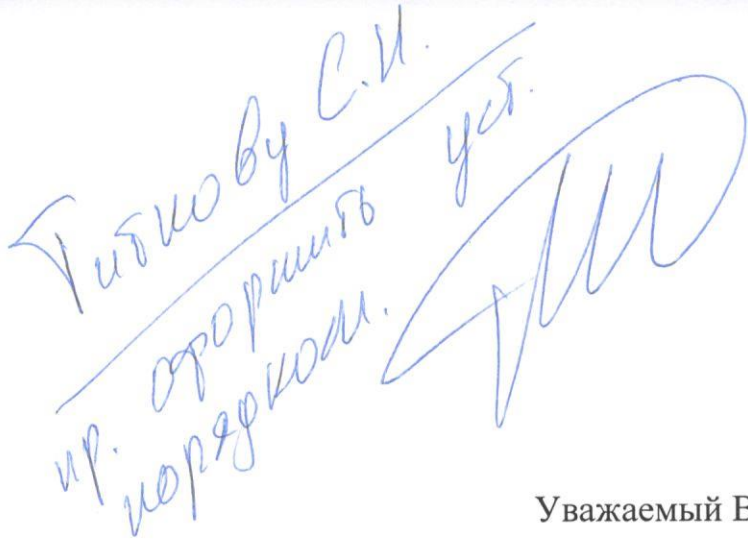 Титкову С.И.
пр. оформить уст.
порядком.
Уважаемый В